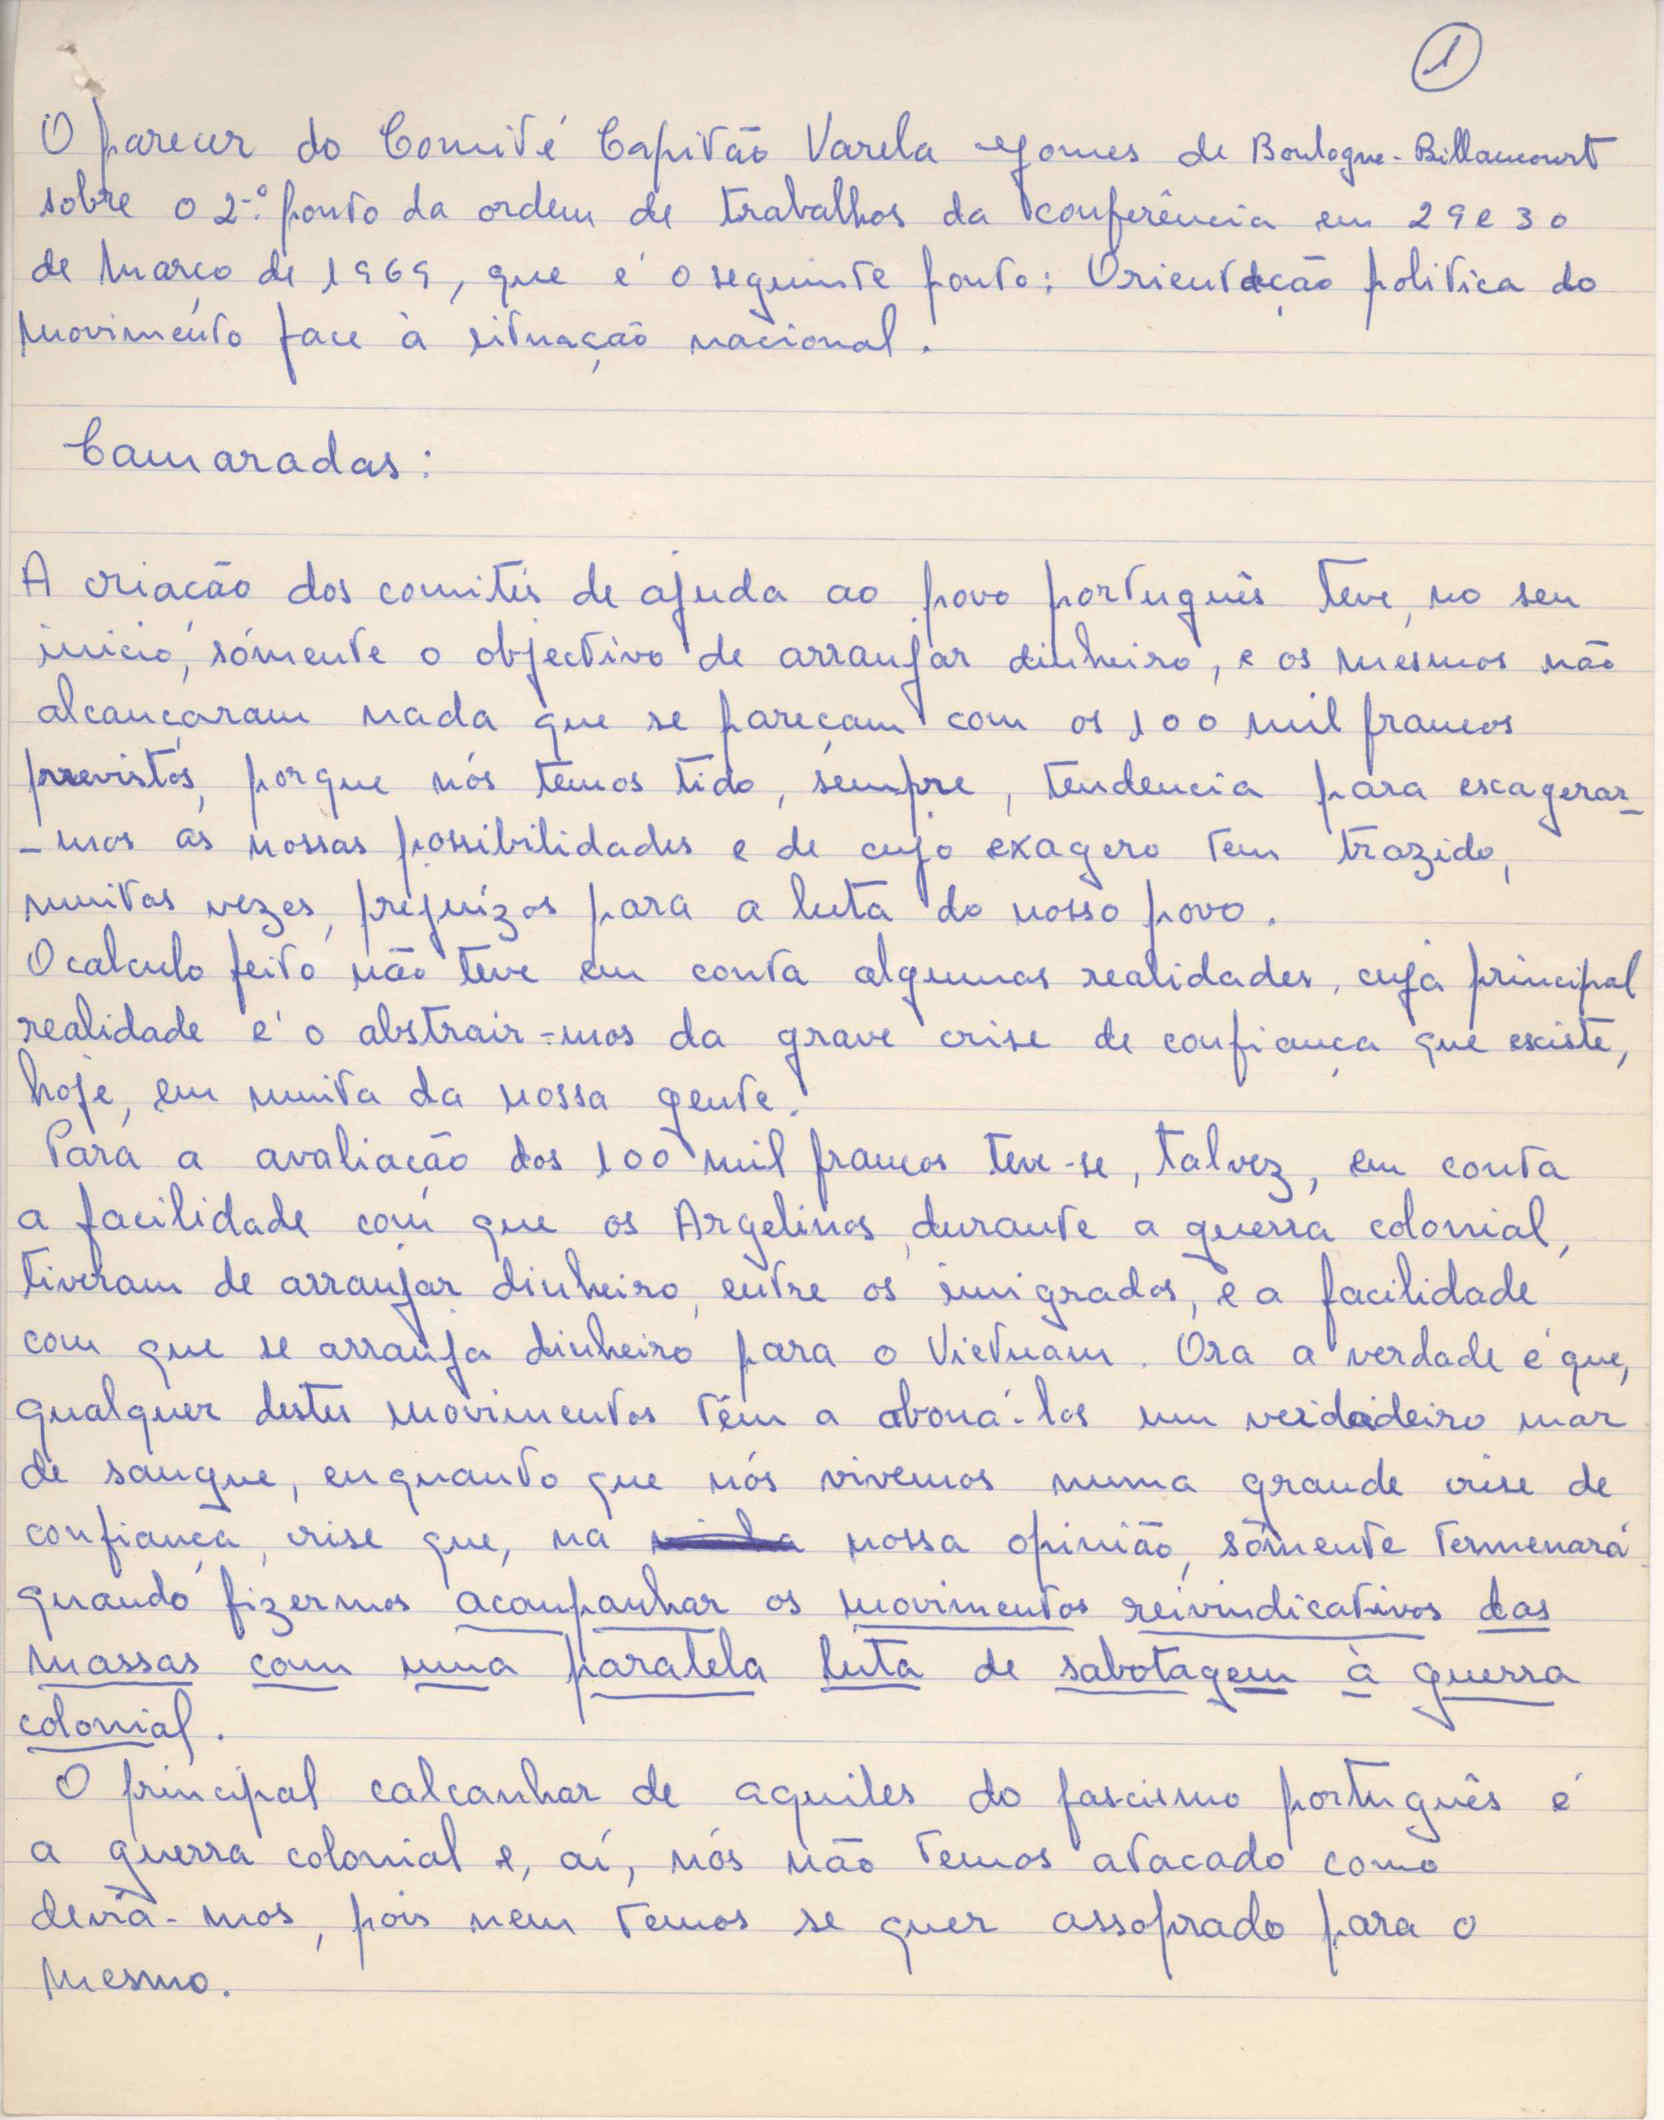 1
O parecer do Comité Capitão Varela Gomes de Boulogne-Billancourt
sobre o 2.º ponto da ordem de trabalhos da conferência em 29 e 30
de Março de 1969, que é o seguinte ponto: Orientação politica do
Movimento face à situação nacional.
Camaradas:
A criação dos comités de ajuda ao povo português teve, no seu
inicio, sómente o objectivo de arranjar dinheiro, e os mesmos não
alcançaram nada que se pareçam com os 100 mil francos
previstos, porque nós temos tido, sempre, tendencia para escagerar-
-mos as nossas possibilidades e de cujo exagero tem trazido,
muitas vezes, prejuízos para a luta do nosso povo.
O calculo feito não teve em conta algumas realidades, cuja principal
realidade é o abstrair-mos da grave crise de confiança que esciste,
hoje, em muita da nossa gente.
Para a avaliação dos 100 mil francos teve-se, talvez, em conta
a facilidade com que os Argelinos, durante a guerra colonial,
tiveram de arranjar dinheiro, entre os imigrados, e a facilidade
com que se arranja dinheiro para o Vietnam. Ora a verdade é que,
qualquer destes movimentos têm a aboná-los um verdadeiro mar
de sangue, enquanto que nós vivemos numa grande crise de
confiança, crise que, na minha nossa opinião, sómente termenará
quando fizermos acompanhar os movimentos reivindicativos das
massas com uma paralela luta de sabotagem à guerra
colonial.
O principal calcanhar de aquiles do fascismo português é
a guerra colonial e, aí, nós não temos atacado como
deviā-mos, pois nem temos se quer assoprado para o
mesmo.